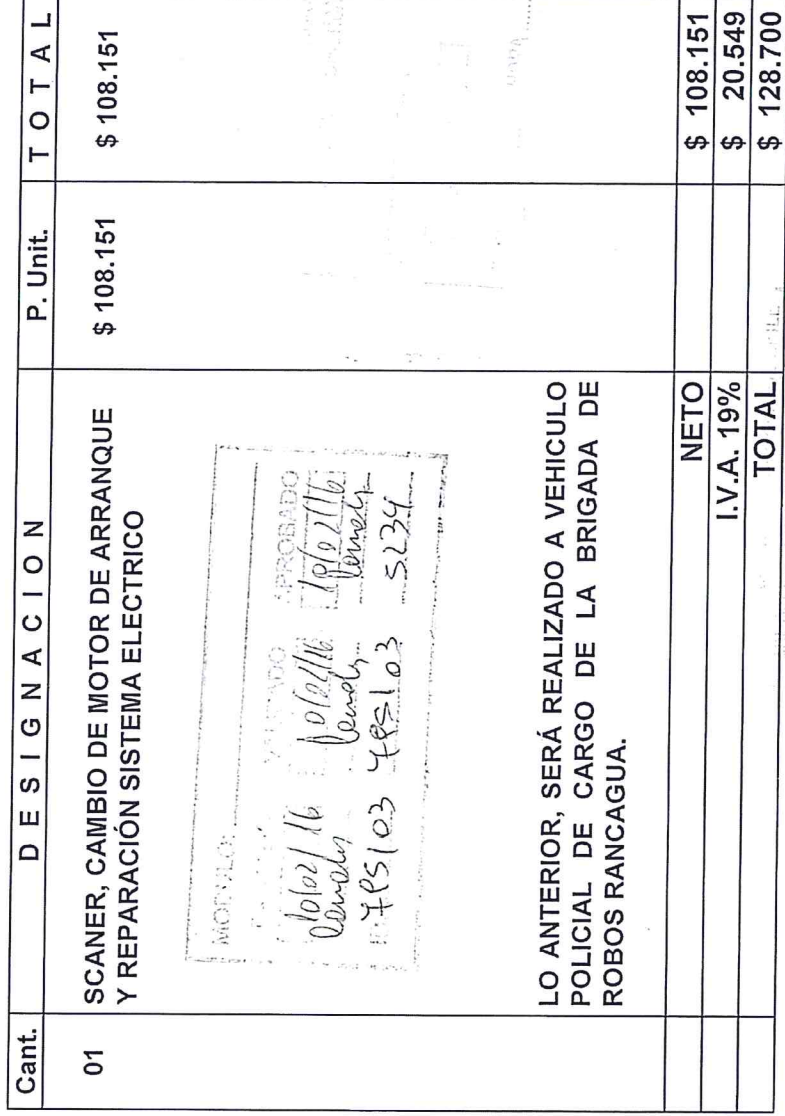 Cant. D E S I G N A C I O N P. Unit. T O T A L
01 SCANER, CAMBIO DE MOTOR DE ARRANQUE $ 108.151 $ 108.151
Y REPARACIÓN SISTEMA ELECTRICO
MODULO:
APROBADO
10/02/16 10/02/16 10/02/16
5234
LO ANTERIOR, SERÁ REALIZADO A VEHICULO
POLICIAL DE CARGO DE LA BRIGADA DE
ROBOS RANCAGUA.
NETO $ 108.151
I.V.A. 19% $ 20.549
TOTAL $ 128.700